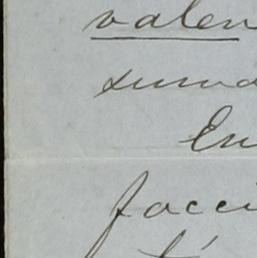 valen
suma
En
facci